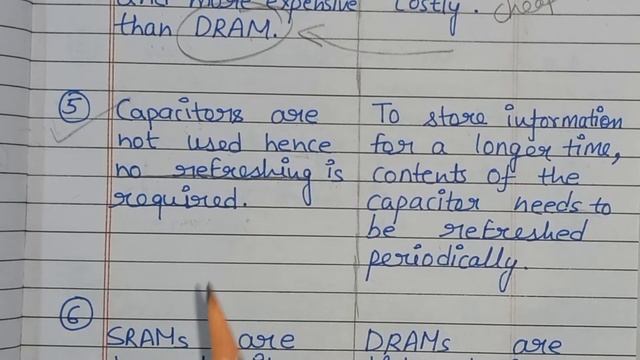 and more expensive
than DRAM.
costly. cheap
⑤ Capacitors are
not used hence
no refreshing is
required.
To store information
for a longer time,
contents of the
capacitor needs to
be refreshed
periodically.
⑥
SRAMs are
DRAMs are